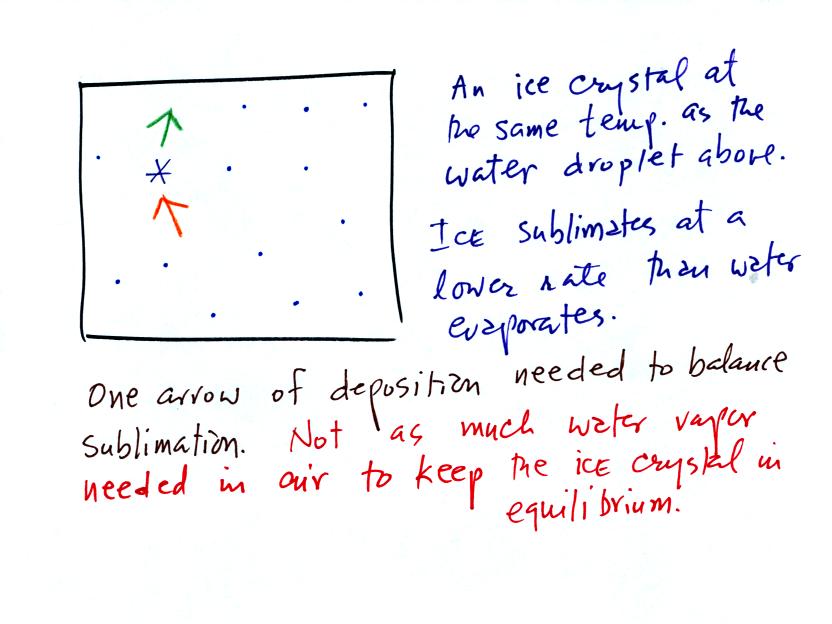 An ice crystal at
the same temp. as the
water droplet above.
ICE sublimates at a
lower rate than water
evaporates.
One arrow of deposition needed to balance
sublimation. Not as much water vapor
needed in air to keep the ICE crystal in
equilibrium.